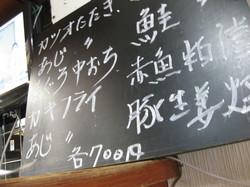 カツオたたき
あじ 〃
まぐろ中おち
カキフライ
あじ 〃
各700円
鮭
赤魚粕漬
豚生姜焼